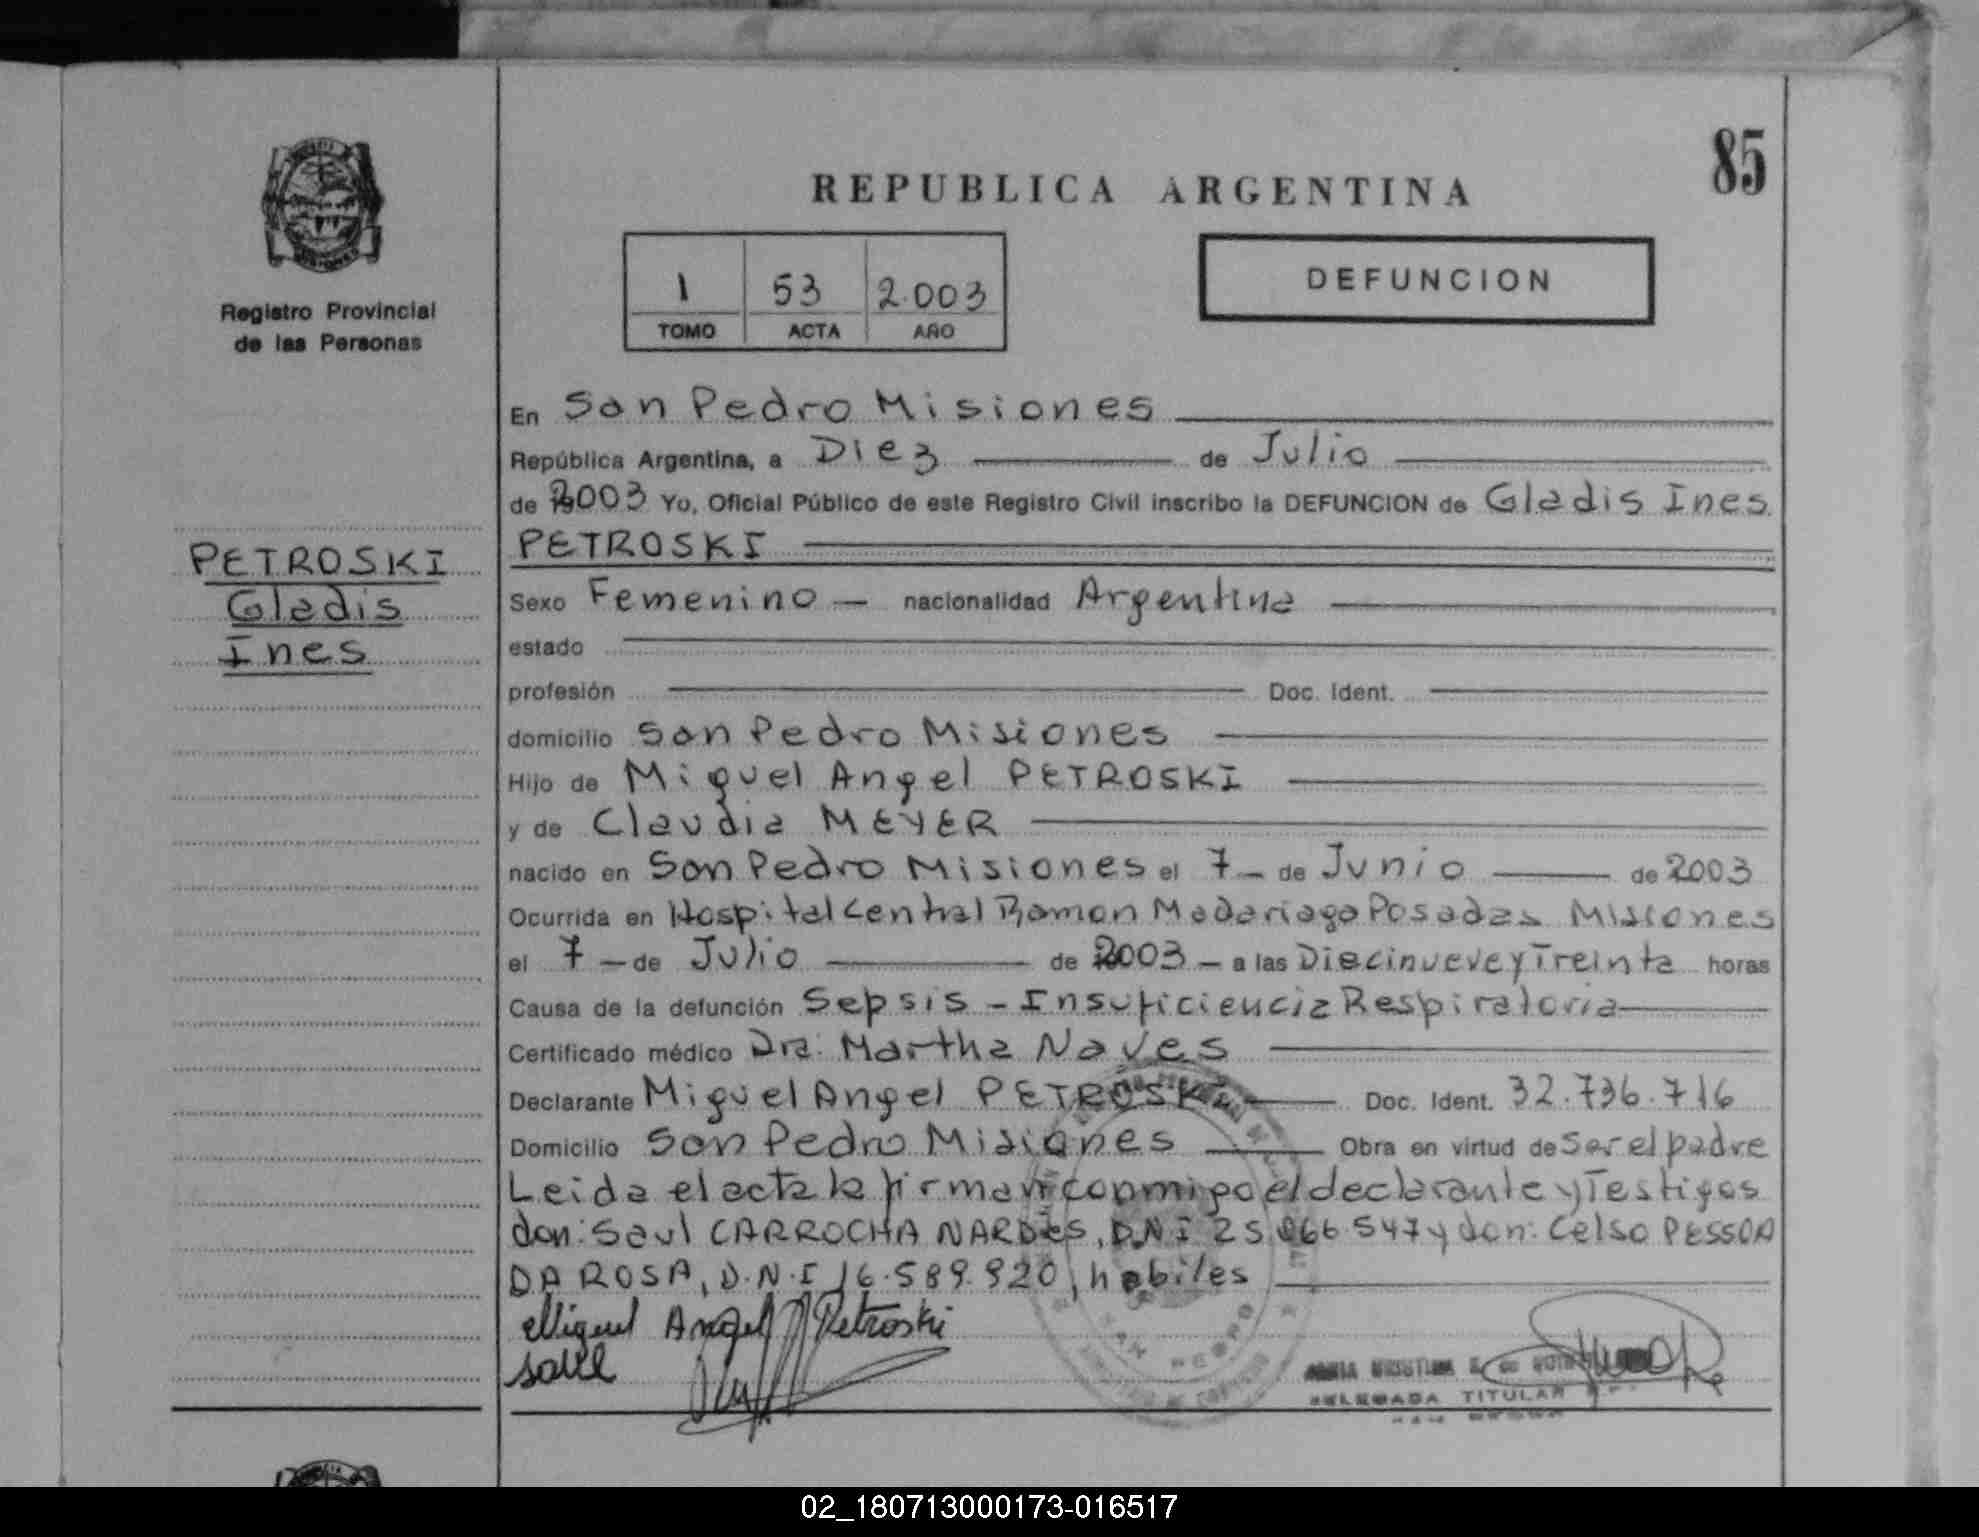 85
REPUBLICA ARGENTINA
Registro Provincial
de las Personas
1 53 2.003
TOMO ACTA AÑO
DEFUNCION
PETROSKI
Gladis
Ines
En San Pedro Misiones
República Argentina, a Diez de Julio
de 2003 Yo, Oficial Público de este Registro Civil inscribo la DEFUNCION de Gladis Ines
PETROSKI
Sexo Femenino — nacionalidad Argentina
estado
profesión Doc. Ident.
domicilio San Pedro Misiones
Hijo de Miguel Angel PETROSKI
y de Claudia MEYER
nacido en San Pedro Misiones el 7 — de Junio de 2003
Ocurrida en Hospital Central Ramon Madariaga Posadas Misiones
el 7 — de Julio de 2003 — a las Diecinueve y Treinta horas
Causa de la defunción Sepsis - Insuficiencia Respiratoria
Certificado médico Dra: Martha Naves
Declarante Miguel Angel PETROSKI Doc. Ident. 32.736.716
Domicilio San Pedro Misiones Obra en virtud de Ser el padre
Leida el acta la firman conmigo el declarante y Testigos
don: Saul CARROCHA NARDES, D.N.I 25.066.547 y don: Celso PESSOA
DA ROSA, D.N.I 16.589.920, habiles
Miguel Angel Petroski
Saul
SAN PEDRO
DELEGADA TITULAR
02_180713000173-016517